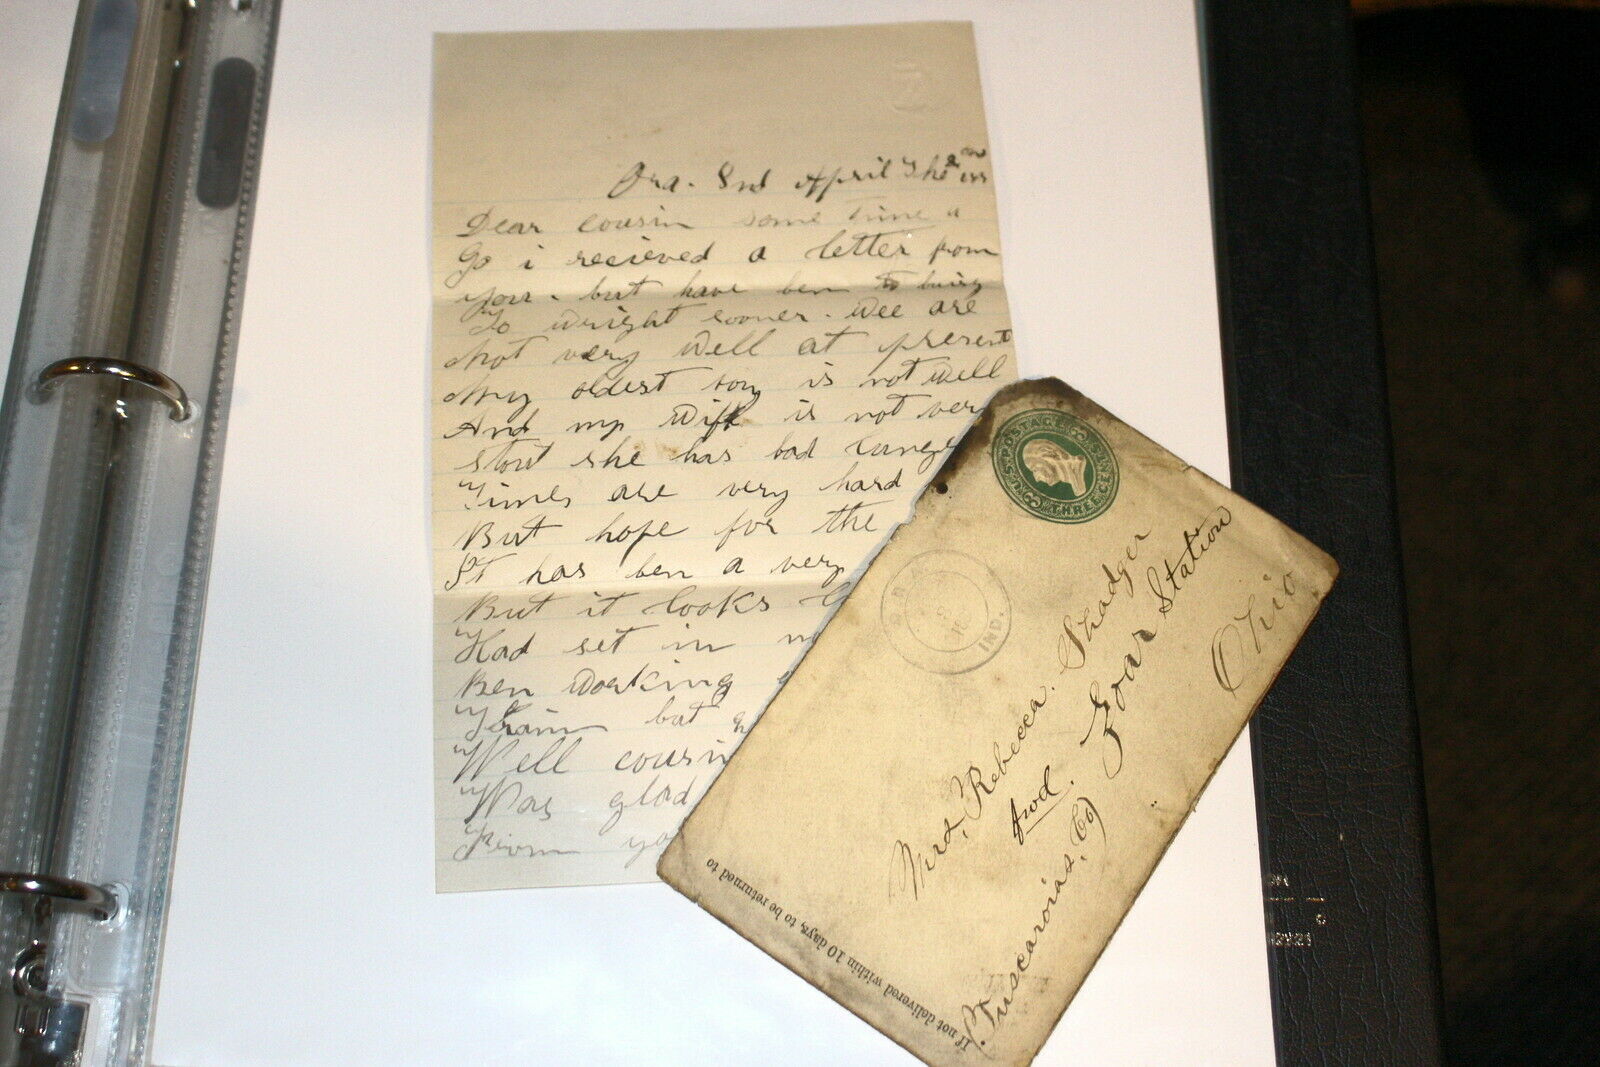 Ora. Ind April the
Dear cousin some time a
Go i recieved a letter from
you. but have ben to buisy
To wright sooner. Wee are
Not very Well at present
My oldest boy is not Well
And my Wife is not very
stout she has bad
Times are very hard
But hope for the
It has ben a very
But it looks
Had set in
Ben Working
but
Well cousin
Was glad
From yo
U.S. POSTAGE
THREE CE
IND.
Mrs, Rebecca. Shadger
Zoar Station
Tuscarawas, Co)
Ohio
If not delivered within 10 days, to be returned to